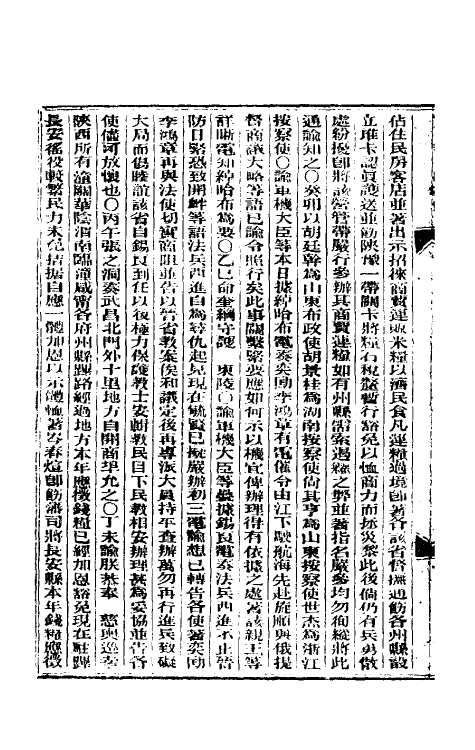 佔住民房客店並著出示招徠商賈運販米糧以濟民食凡運糧過境即著各該省督撫通飭各州縣設
立堆卡認眞護送並飭陝豫一帶關卡將糧石稅釐暫行豁免以恤商力而拯災黎此後倘仍有兵勇散
處紛擾即將該營管帶嚴行參辦其商賈運糧如有州縣需索遏糴之弊並著指名嚴參均勿徇縱將此
通諭知之〇癸卯以胡廷幹爲山東布政使胡景桂爲湖南按察使尙其亨爲山東按察使世杰爲浙江
按察使〇諭軍機大臣等本日據綽哈布電奏奕劻李鴻章有電催令由江下駛航海先赴旅順與俄提
督商議大略等語已諭令照行矣此事關繫緊要應如何示以機宜俾辦理得有依據之處著該親王等
詳晰電知綽哈布爲要〇乙巳命奎綱守護　東陵〇諭軍機大臣等據錫良電奏法兵西進不止晉
防日緊恐致開衅等語法兵西進自爲尋仇起見現在毓賢已擬嚴辦初三電諭想已轉告各使著奕劻
李鴻章再與法使切實商阻並告以晉省教案俟和議定後再專派大員持平査辦萬勿再行進兵致礙
大局而傷睦誼該省自錫良到任以後極力保護教士安輯教民目下民教相安辦理甚爲妥協並告各
使儘可放懷也〇丙午張之洞奏武昌北門外十里地方自開商埠允之〇丁未諭朕恭奉　慈輿巡幸
陝西所有潼關華陰渭南臨潼咸甯各府州縣蹕路經過地方本年應徵錢糧已經加恩豁免現在駐蹕
長安徭役較繁民力未免拮据自應一體加恩以示體恤著岑春煊即飭藩司將長安縣本年錢糧應徵